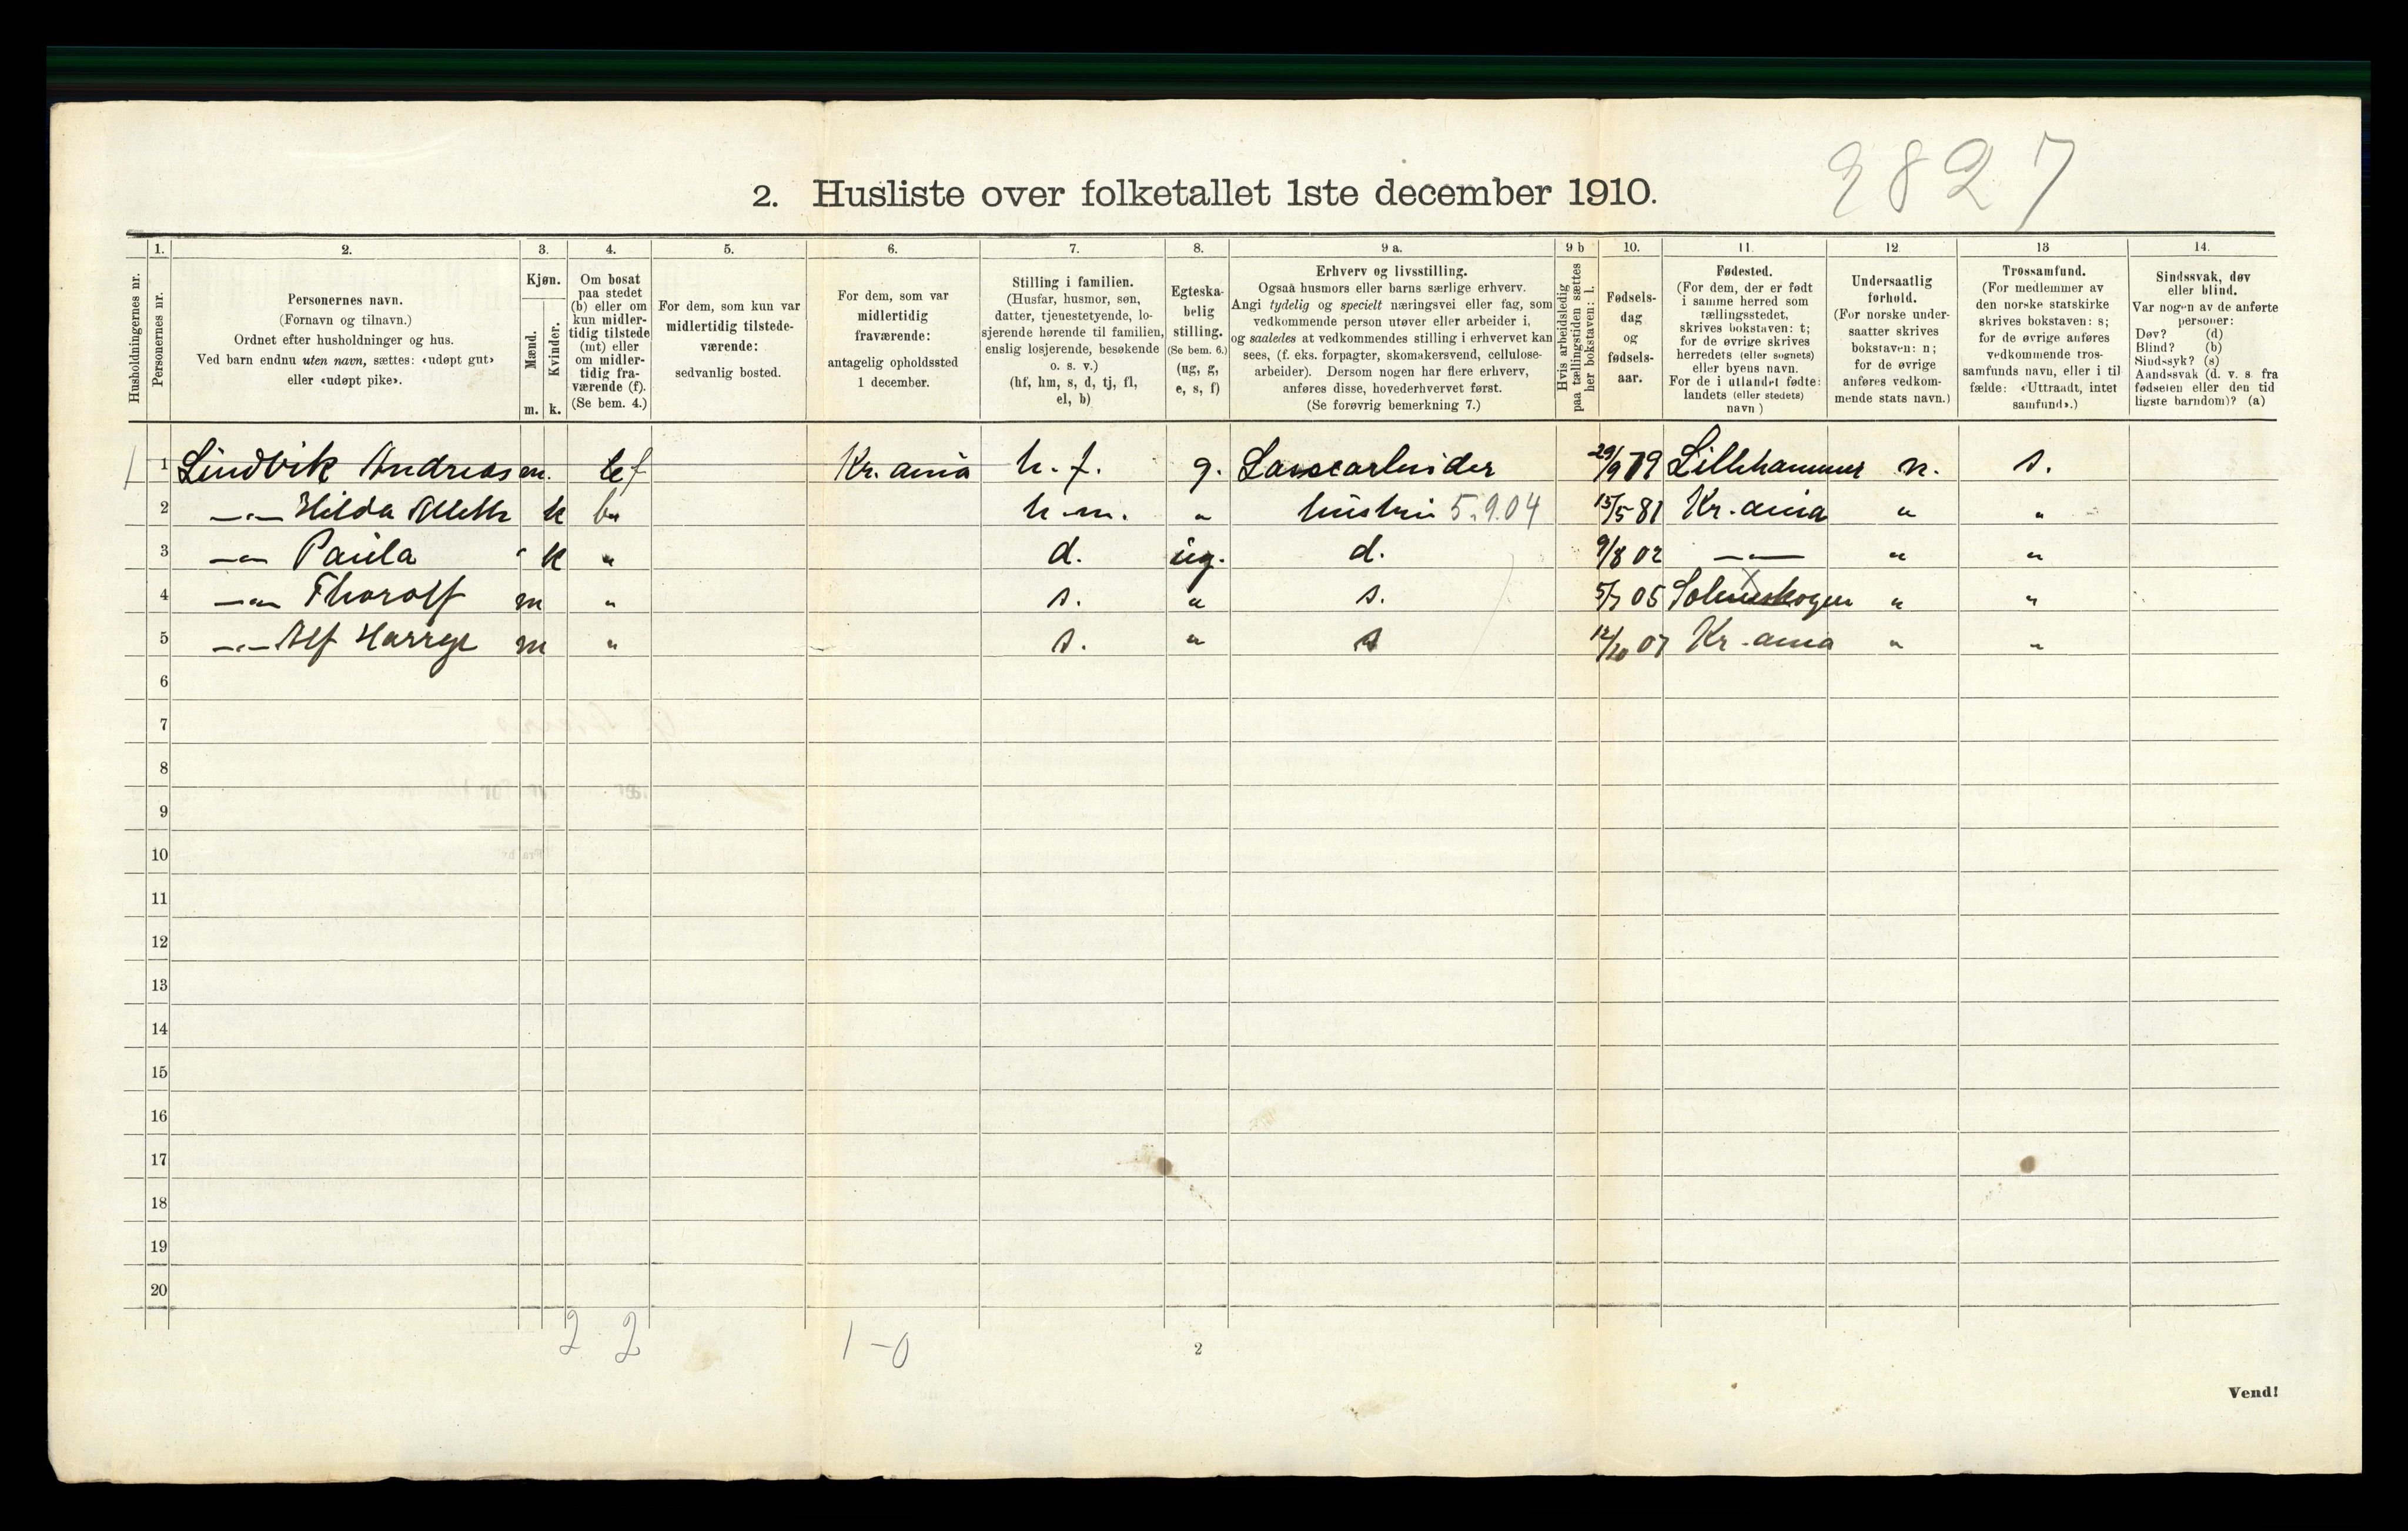 2. Husliste over folketallet 1ste december 1910.
2827
1. 2. 3. 4. 5. 6. 7. 8. 9 a. 9 b 10. 11. 12 13 14.
Husholdningernes nr.
Personernes nr.
Personernes navn.
(Fornavn og tilnavn.)
Ordnet efter husholdninger og hus.
Ved barn endnu uten navn, sættes: «udøpt gut»
eller «udøpt pike».
Kjøn.
Mænd.
Kvinder.
m. k.
Om bosat
paa stedet
(b) eller om
kun midler-
tidig tilstede
(mt) eller
om midler-
tidig fra-
værende (f).
(Se bem. 4.)
For dem, som kun var
midlertidig tilstede-
værende:
sedvanlig bosted.
For dem, som var
midlertidig
fraværende:
antagelig opholdssted
1 december.
Stilling i familien.
(Husfar, husmor, søn,
datter, tjenestetyende, lo-
sjerende hørende til familien,
enslig losjerende, besøkende
o. s. v.)
(hf, hm, s, d, tj, fl,
el, b)
Egteska-
belig
stilling.
(Se bem. 6.)
(ug, g,
e, s, f)
Erhverv og livsstilling.
Ogsaa husmors eller barns særlige erhverv.
Angi tydelig og specielt næringsvei eller fag, som
vedkommende person utøver eller arbeider i,
og saaledes at vedkommendes stilling i erhvervet kan
sees, (f. eks. forpagter, skomakersvend, cellulose-
arbeider). Dersom nogen har flere erhverv,
anføres disse, hovederhvervet først.
(Se forøvrig bemerkning 7.)
Hvis arbeidsledig
paa tællingstiden sættes
her bokstaven: l.
Fødsels-
dag
og
fødsels-
aar.
Fødested.
(For dem, der er født
i samme herred som
tællingsstedet,
skrives bokstaven: t;
for de øvrige skrives
herredets (eller sognets)
eller byens navn.
For de i utlandet fødte:
landets (eller stedets)
navn)
Undersaatlig
forhold.
(For norske under-
saatter skrives
bokstaven: n;
for de øvrige
anføres vedkom-
mende stats navn.)
Trossamfund.
(For medlemmer av
den norske statskirke
skrives bokstaven: s;
for de øvrige anføres
vedkommende tros-
samfunds navn, eller i til-
fælde: «Uttraadt, intet
samfund».)
Sindssvak, døv
eller blind.
Var nogen av de anførte
personer:
Døv? (d)
Blind? (b)
Sindssyk? (s)
Aandssvak (d. v. s. fra
fødselen eller den tid
ligste barndom)? (a)
1 1 Lindvik Andreas m. f Kr. ania h. f. g. 29/9 79 Lillehammer n. s.
2 -"- Hilda k b h. m. " hustru 5.9.04 15/5 81 Kr. ania " "
3 -"- Paula k " d. ug. d. 9/8 02 -"- " "
4 -"- Thorolf m " s. " s. 5/7 05 " "
5 -"- Alf m " s. " s 12/10 07 Kr. ania " "
6
7
8
9
10
11
12
13
14
15
16
17
18
19
20
2 2 1-0
2
Vend!